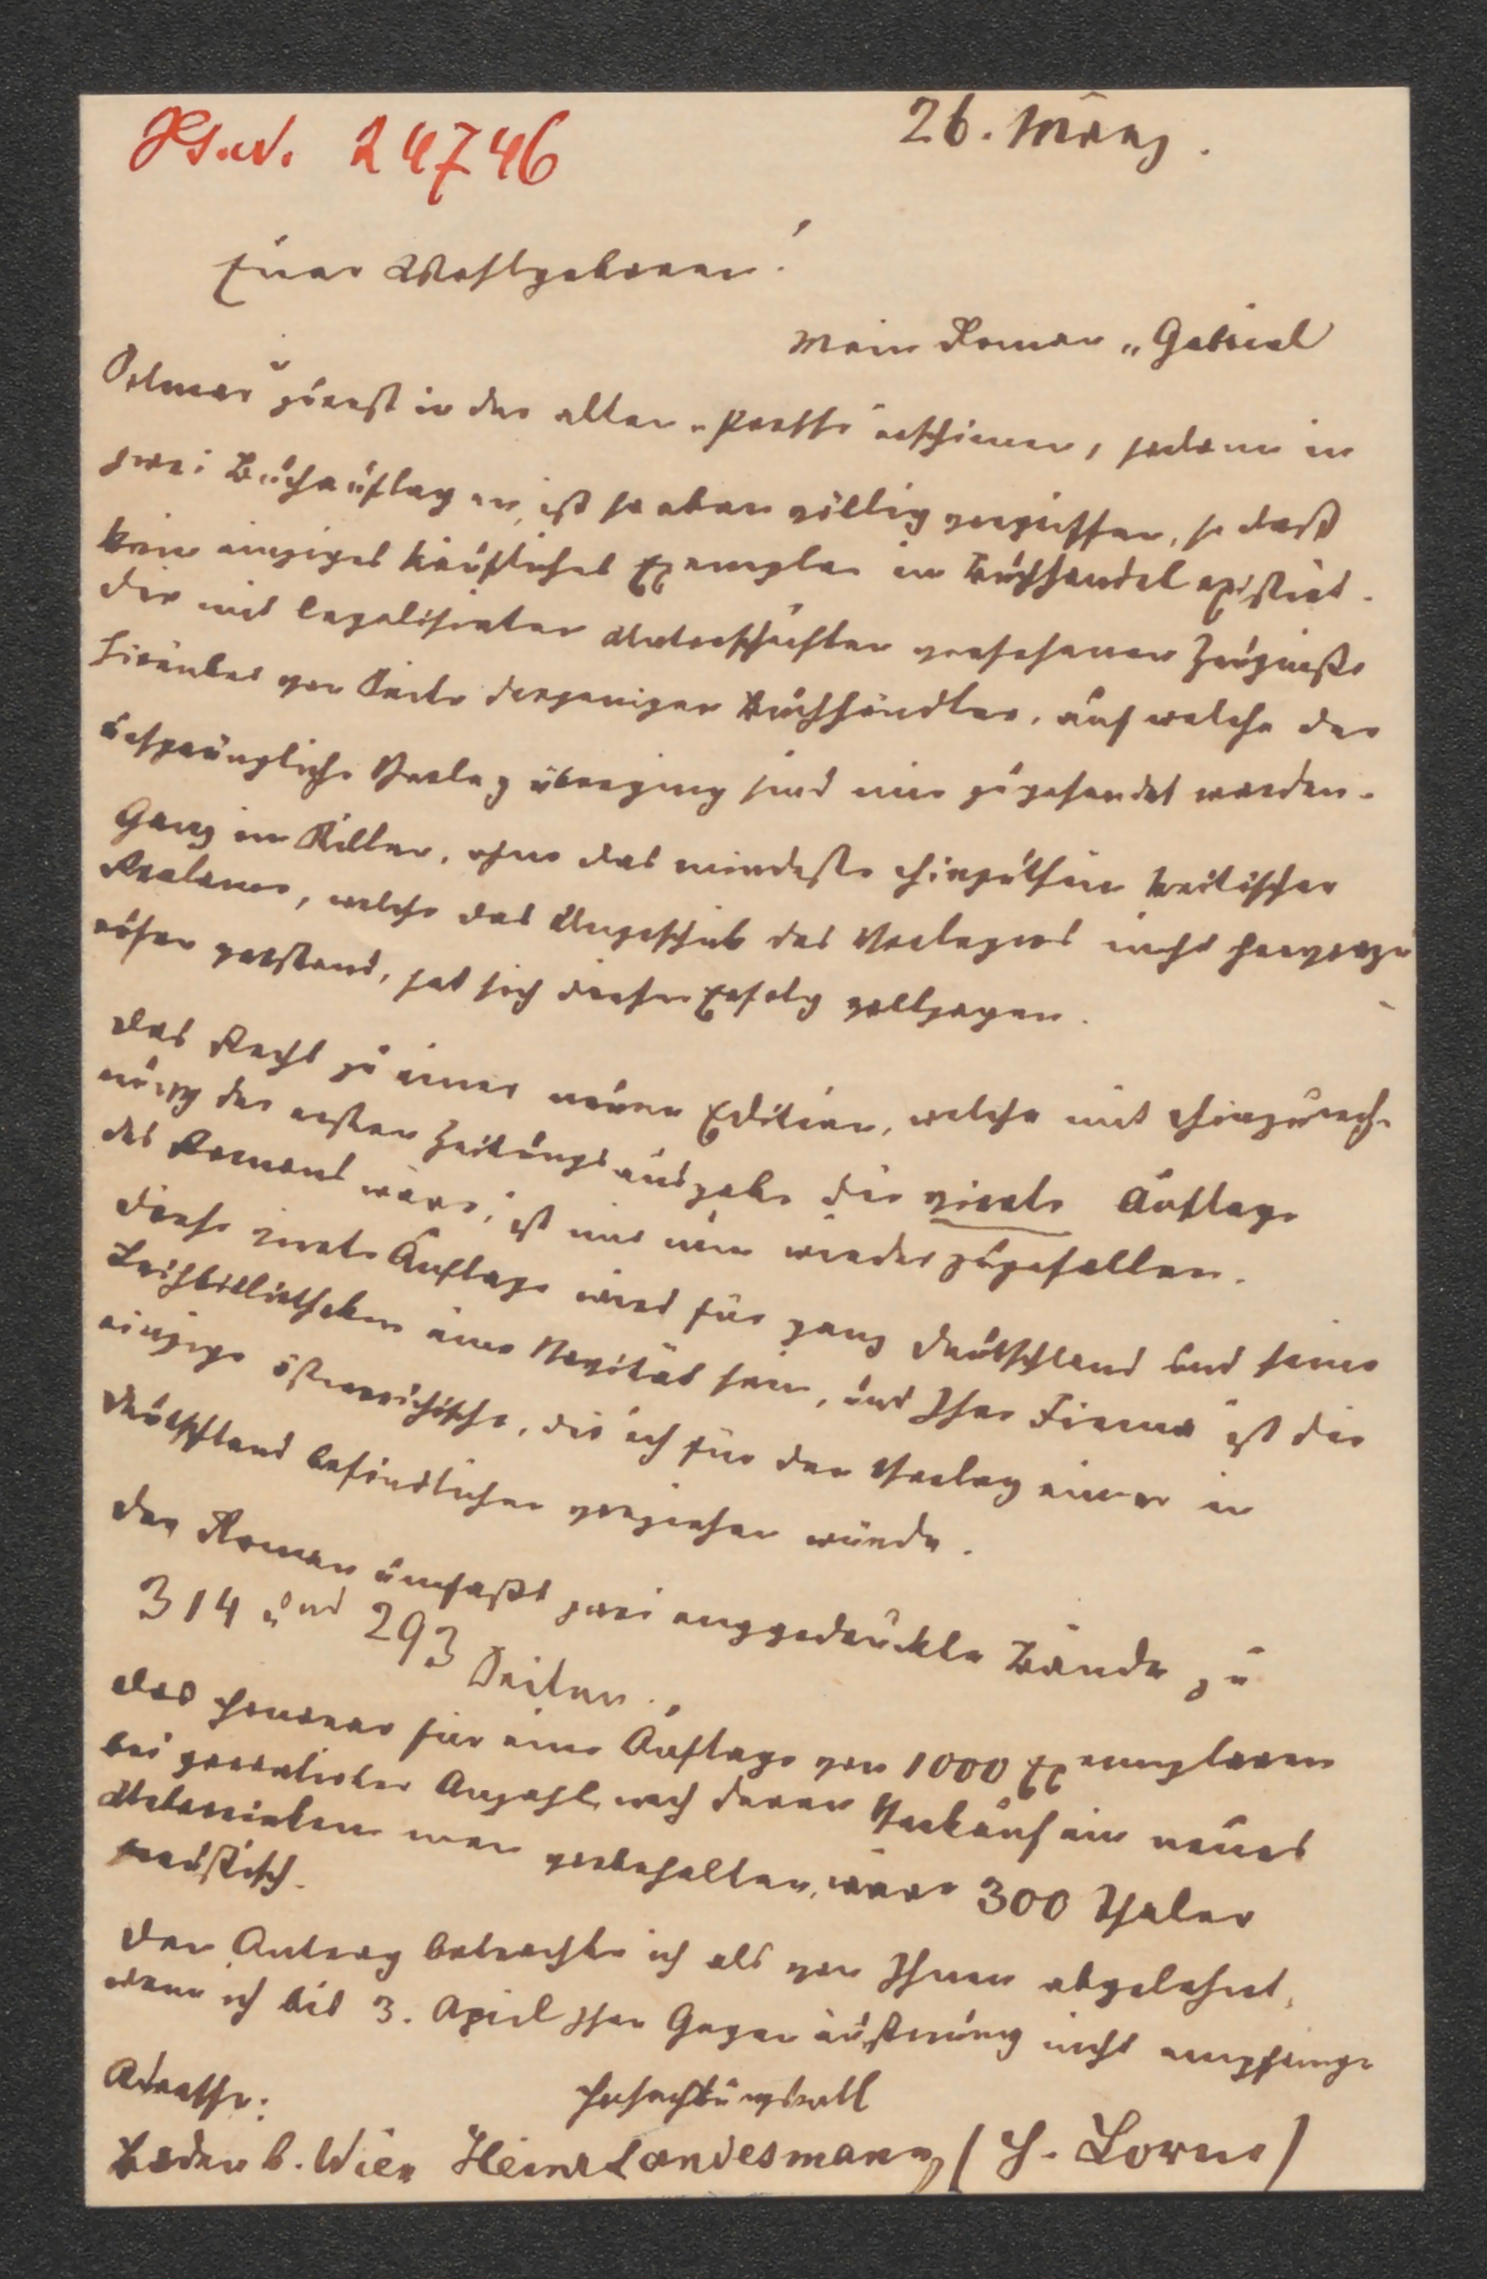 26. März.
24746
Euer Wohlgeboren!
Mein Roman „Gabriel
Solmar" zuerst in der alten „Presse" erschienen, sodann in
zwei Buchauflagen, ist soeben völlig vergriffen, so daß
kein einziges käufliches Exemplar im Buchhandel existirt.
Die mit legalisirten Unterschriften versehenen Zeugniße
hierüber von Seite derjenigen Buchhändler, auf welche der
ursprüngliche Verlag überging sind mir zugesendet worden.
Ganz im Stillen, ohne das mindeste Hinzuthun kritischer
Reclame, welche das Ungeschick des Verlegers nicht hervorzu
rufen verstand, hat sich dieser Erfolg vollzogen.
Das Recht zu einer neuen Edition, welche mit Hinzurech-
nung der ersten Zeitungsausgabe die vierte Auflage
des Romans wäre, ist mir nun wieder zugefallen.
Diese vierte Auflage wird für ganz Deutschland und seine
Leihbibliotheken eine Novität sein, und Ihre Firma ist die
einzige österreichische, die ich für den Verlag einer in
Deutschland befindlichen vorziehen würde.
Der Roman umfaßt zwei enggedruckte Bände zu
314 und 293 Seiten.
Das Honorar für eine Auflage von 1000 Exemplaren
bei Anzahl, nach deren Verkauf ein neues
Uebereinkommen vorbehalten, wäre 300 Thaler
preußisch.
Den Antrag betrachte ich als von Ihnen abgelehnt,
wenn ich bis 3. April Ihre Gegenäußerung nicht empfinge
Adresse: Hochachtungsvoll
Baden b. Wien Heinr Landesmann (H. Lorm)